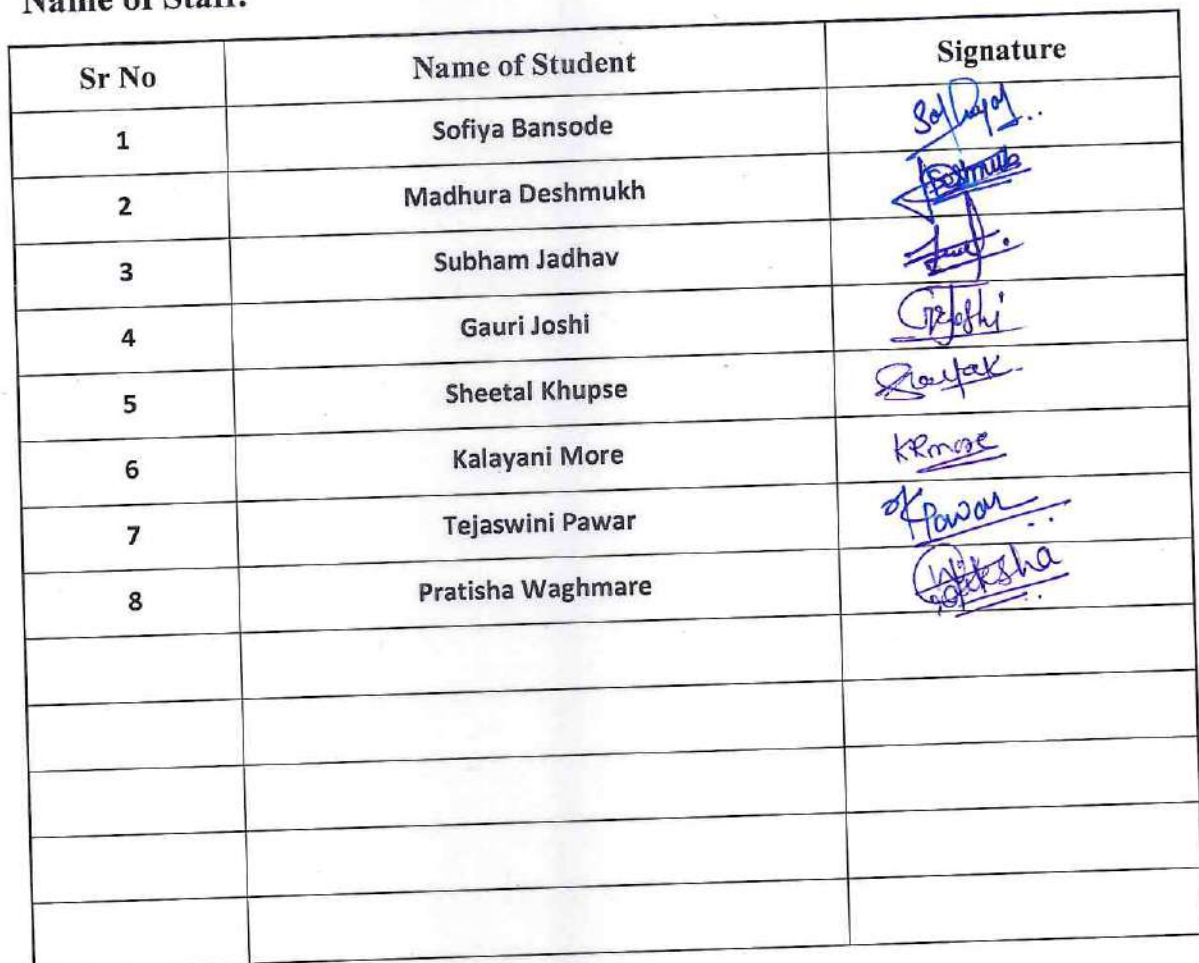 Name of Staff:
Sr No Name of Student Signature
1 Sofiya Bansode
2 Madhura Deshmukh Deshmukh
3 Subham Jadhav
4 Gauri Joshi GRJoshi
5 Sheetal Khupse
6 Kalayani More KRmore
7 Tejaswini Pawar Pawar
8 Pratisha Waghmare